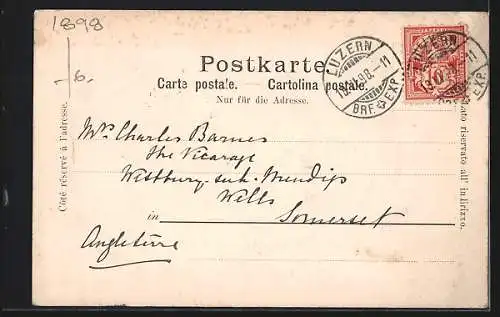 1898
-6.
Postkarte.
Carte postale. — Cartolina postale.
Nur für die Adresse.
LUZERN
BRF. EXP.
LUZERN
EXP.
10
Côté réservé à l'adresse.
Lato riservato all' indirizzo.
Mrs Charles Barnes
The Vicarage
Westbury-sub-Mendip
Wells
in Somerset
Angleterre